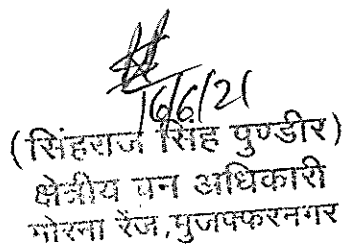 16/6/21
(सिंहराज सिंह पुण्डीर)
क्षेत्रीय वन अधिकारी
मोरना रेंज,मुजफ्फरनगर